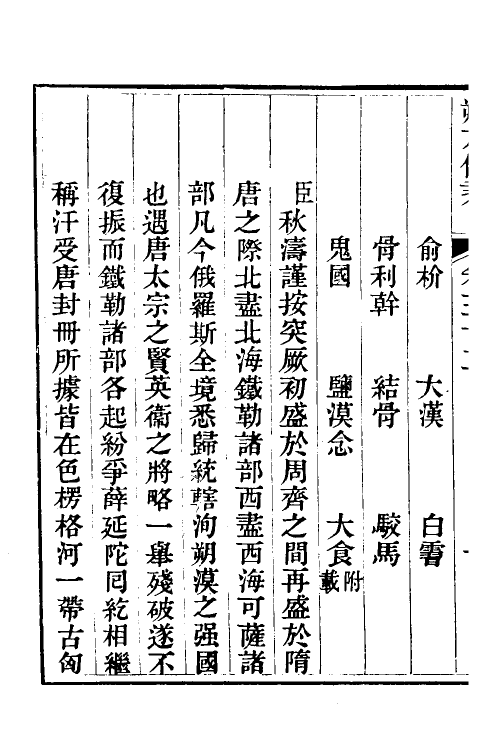 俞枌　大漢　白霫
骨利幹　結骨　駮馬
鬼國　鹽漠念　大食附載
臣秋濤謹按突厥初盛於周齊之間再盛於隋
唐之際北盡北海鐵勒諸部西盡西海可薩諸
部凡今俄羅斯全境悉歸統轄洵朔漠之强國
也遇唐太宗之賢英衞之將略一舉殘破遂不
復振而鐵勒諸部各起紛爭薛延陀囘紇相繼
稱汗受唐封冊所據皆在色楞格河一帶古匈